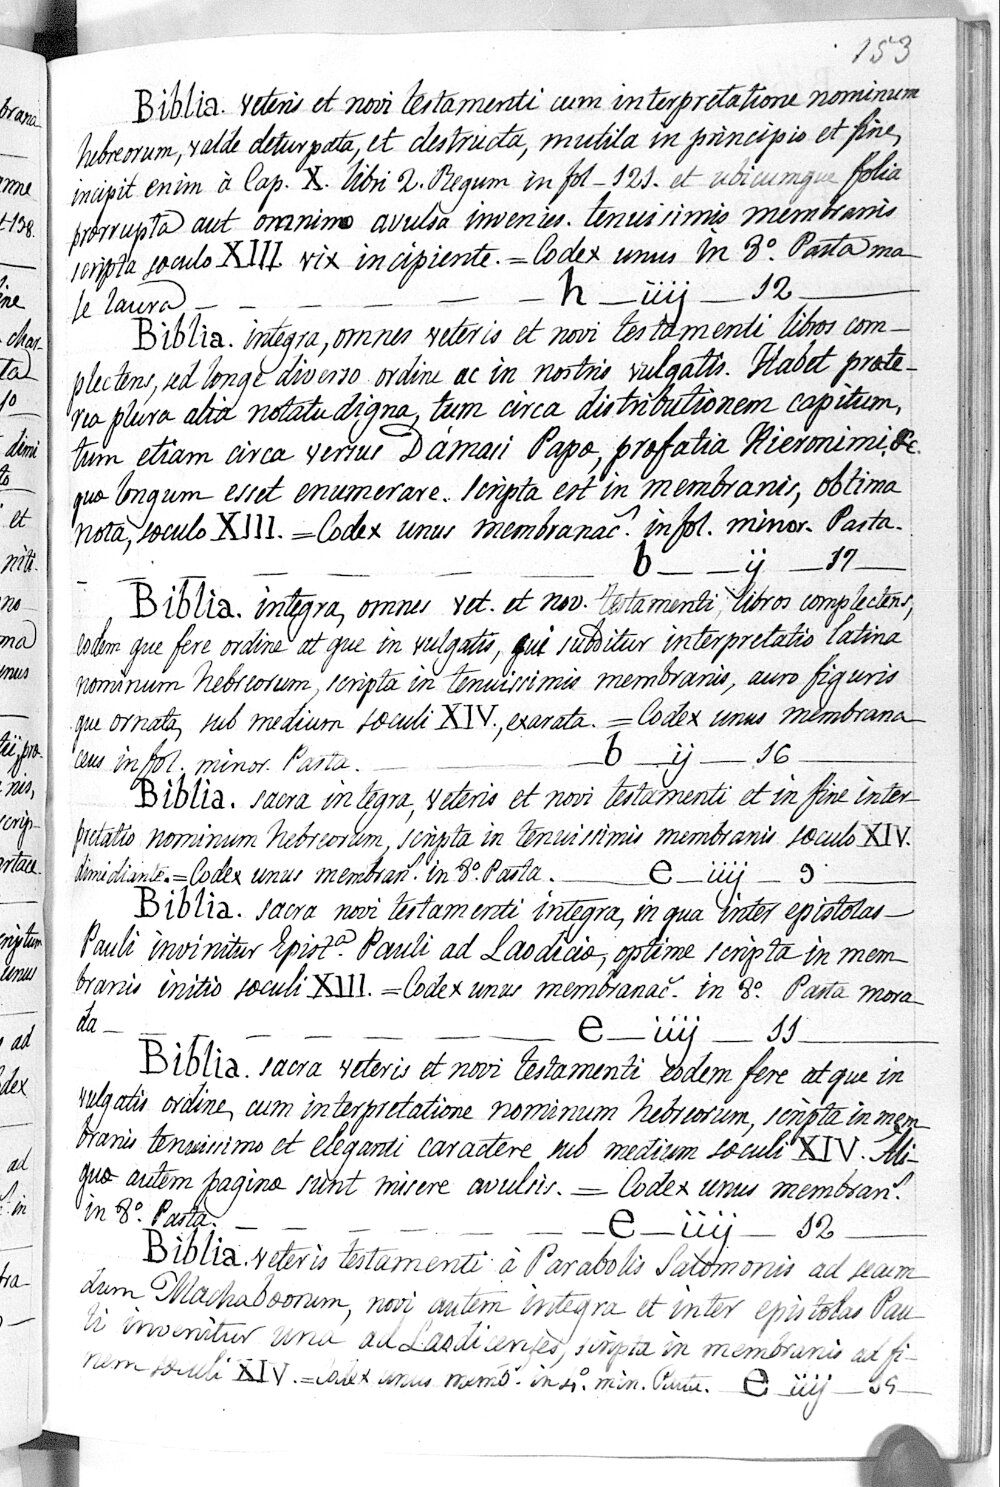 153
Biblia. veteris et novi testamenti cum interpretatione nominum
hebreorum, valde deturpata, et destructa, mutila in principio et fine,
incipit enim à Cap. X. libri 2. Regum in fol-121. et ubicumque folia
prorrupta aut omnimo avulsa invenies. tenuissimis membranis
scripta sæculo XIII vix incipiente. = Codex unus in 8º. Pasta ma
le laura — — — — — — h — iiij — 12
Biblia. integra, omnes veteris et novi testamenti libros com-
plectens, sed longe diverso ordine ac in nostris vulgatis. Habet præte-
rea plura alia notatu digna, tum circa distributionem capitum,
tum etiam circa versus Dámasi Papæ, præfatia Hieronimi, &c.
quæ longum esset enumerare. scripta est in membranis, obtima
nota, sæculo XIII. = Codex unus membranac. in fol. minor. Pasta.
— — — — — b — — ij — 17 —
Biblia. integra, omnes vet. et nov. testamenti, libros complectens,
eodem que fere ordine at que in vulgatis, qui subditur interpretatio latina
nominum hebreorum, scripta in tenuissimis membranis, auro figuris
que ornata, sub medium sæculi XIV., exarata. = Codex unus membrana
ceus in fol. minor. Pasta. — — — b — ij — 16 —
Biblia. sacra integra, veteris et novi testamenti et in fine inter-
pretatio nominum hebreorum, scripta in tenuissimis membranis sæculo XIV.
dimidiante. = Codex unus membran. in 8º. Pasta. — e — iiij — 9 —
Biblia. sacra novi testamenti integra, in qua inter epistolas
Pauli invinitur Epistª. Pauli ad Laodiciæ, optime scripta in mem
branis initio sæculi XIII. = Codex unus membranac. in 8º. Pasta mora
da — — — — — — e — iiij — 11 —
Biblia. sacra veteris et novi testamenti eodem fere at que in
vulgatis ordine, cum interpretatione nominum hebreorum, scripta in mem
branis tenuissimo et eleganti caractere sub medium sæculi XIV. Ali-
quæ autem paginæ sunt misere avulsis. = Codex unus membran.
in 8º. Pasta. — — — — — — e — iiij — 12 —
Biblia. veteris testamenti à Parabolis Salomonis ad secum
dum Machabæorum, novi autem integra et inter epistolas Pau
li invenitur una ad Laodicenses, scripta in membranis ad fi-
nem sæculi XIV. = Codex unus memb. in 4º. min. Pasta. e — iiij —